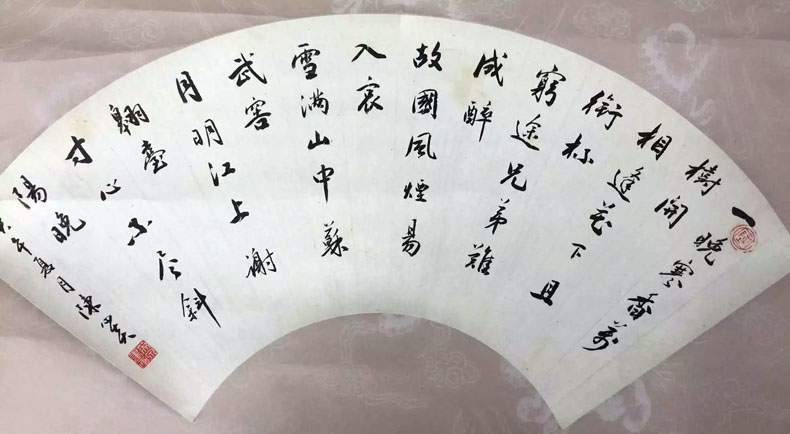 一晚寒香萬
樹開
相逢花下且
銜杯
窮途兄弟難
成醉
故國風煙易
入哀
雪滿山中蘇
武窖
月明江上謝
翱臺
寸心不斜
陽晚
年夏月陳